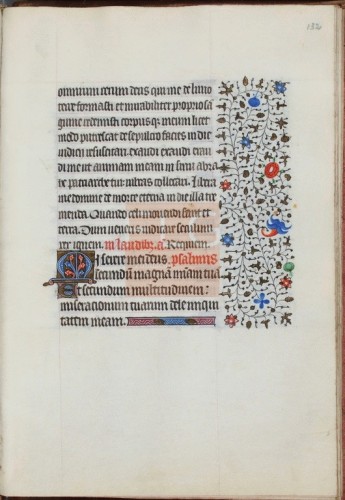 132
omnium rerum deus qui me de limo
terre formasti et mirabiliter proprio sa
guine redemisti corpusq; meum licet
modo putrescat de sepulcro facies in die
iudicii resuscitari exaudi exaudi exau
di me ut animam meam in sinu abra
he patriarche tui iubeas collocari. Libera
me domine de morte eterna in die illa tre
menda. Quando celi mouendi sunt et
terra. Dum ueneris iudicare seculum
per ignem. in laudib; a. Requiem.
Miserere mei deus. psalmus
secundum magnā mīam tuā
Et secundum multitudinem:
miseracionum tuarum dele iniqui
tatem meam.